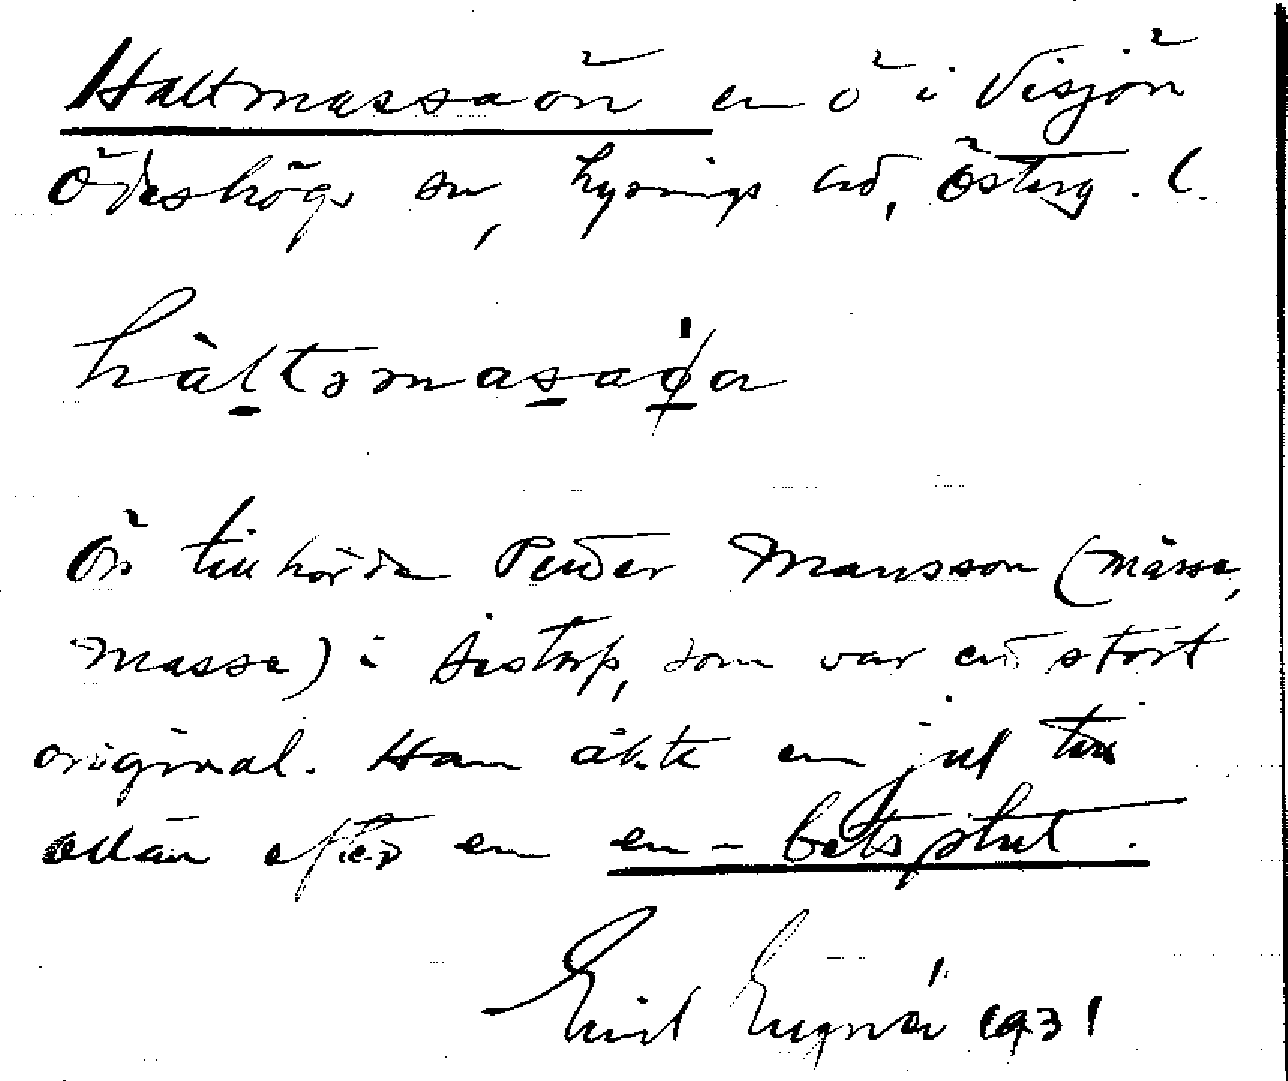 Haltmassaön en ö i Visjön
Ödeshögs sn, Lysings hd, Österg. l.
hàltomasaøn
Ön tillhörde Petter Månsson (Måsse,
Massa) i Åstorp, som var ett stort
original. Han åkte en jul till
ottan efter en en-betsplut.
Emil 1931